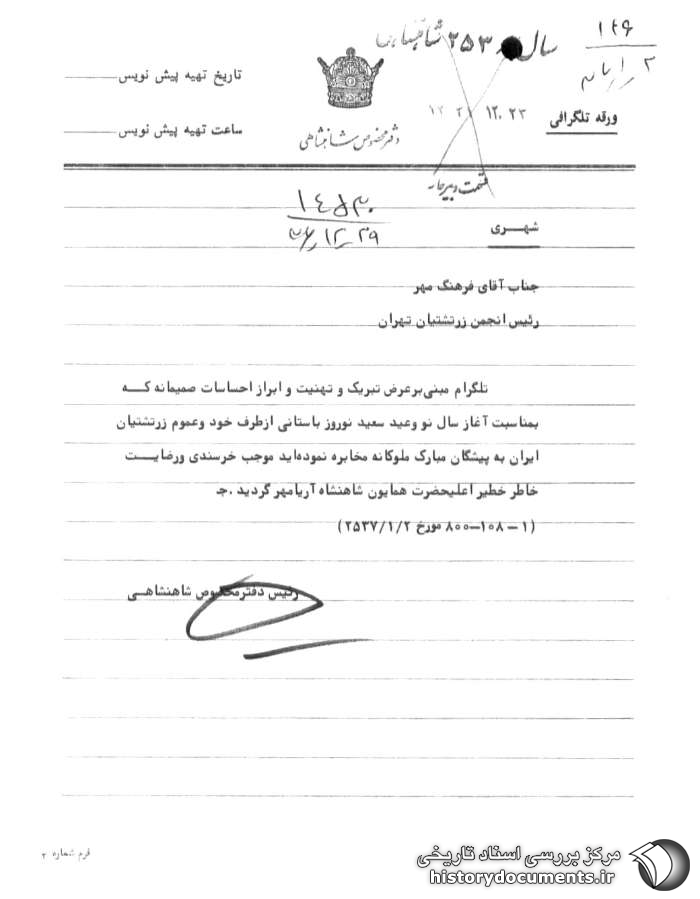 ۱۴۶
سال ۲۵۳ شاهنشاهی
تاریخ تهیه پیش نویس
ورقه تلگرافی
۱۲.۲۳
ساعت تهیه پیش نویس
دفتر مخصوص شاهنشاهی
شهـــری
جناب آقای فرهنگ مهر
رئیس انجمن زرتشتیان تهران
تلگرام مبنی‌بر عرض تبریک و تهنیت و ابراز احساسات صمیمانه کـــه
بمناسبت آغاز سال نو وعید سعید نوروز باستانی ازطرف خود وعموم زرتشتیان
ایران به پیشگاه مبارک ملوکانه مخابره نموده‌اید موجب خرسندی ورضایـــت
خاطر خطیر اعلیحضرت همایون شاهنشاه آریامهر گردید .جـ
(۱ – ۱۰۸–۸۰۰ مورخ ۲۵۳۷/۱/۲)
رئیس دفتر مخصوص شاهنشاهـــی
فرم شماره ۲
مرکز بررسی اسناد تاریخی
historydocuments.ir